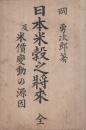 岡 勇次郎著
日本米穀之將來
及米價變動の源因
全